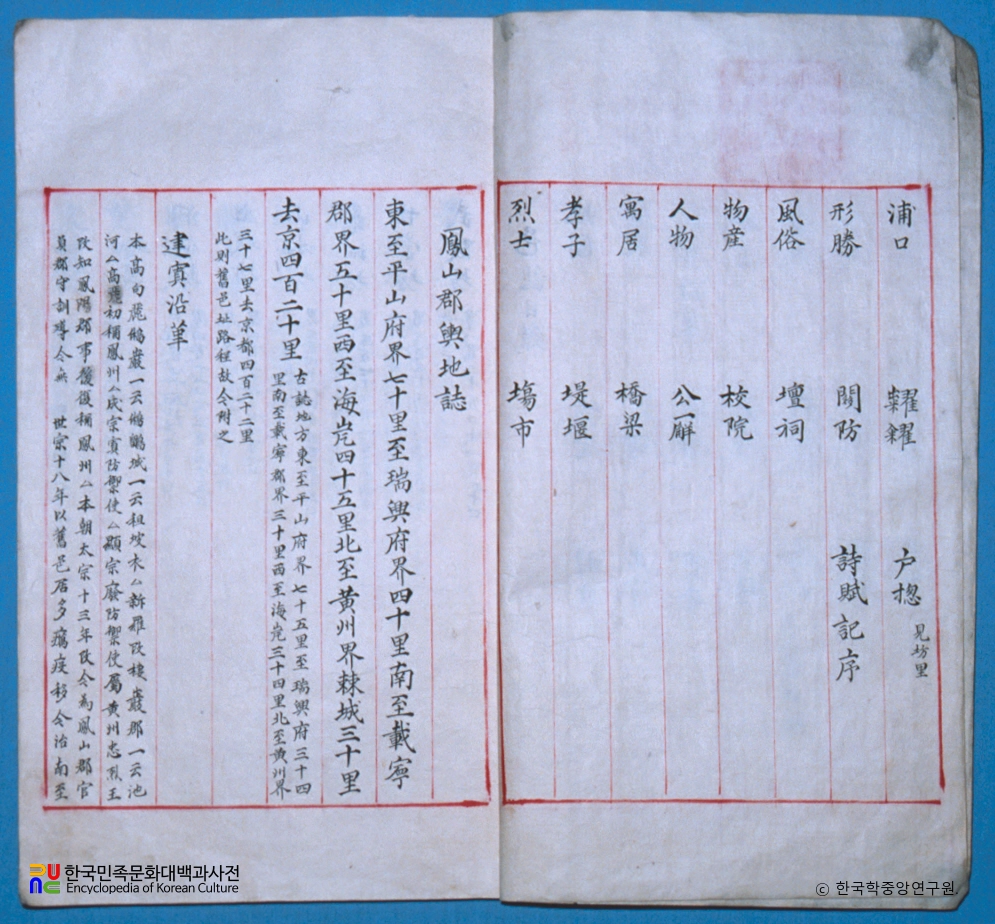 浦口 糶糴 戶摠 見坊里
形勝 關防 詩賦記序
風俗 壇祠
物産 校院
人物 公廨
寓居 橋梁
孝子 堤堰
烈士 塲市
鳳山郡輿地誌
東至平山府界七十里至瑞興府界四十里南至載寧
郡界五十里西至海岸四十五里北至黃州界棘城三十里
去京四百二十里 古誌地方東至平山府界七十五里至瑞興府三十四
里南至載寧郡界三十里西至海岸三十四里北至黃州界
三十七里去京都四百二十二里
此則舊邑址路程故今附之
建寘沿革
本高句麗鵂巖一云鵂鶹城一云租坡衣厶新羅改棲巖郡一云池
河厶高麗初稱鳳州厶成宗寘防禦使厶顯宗廢防禦使屬黃州忠烈王
改知鳳陽郡事後復稱鳳州厶本朝太宗十三年改今爲鳳山郡官
員郡守訓導今無 世宗十八年以舊邑居多癘疫移今治南至
한국민족문화대백과사전
Encyclopedia of Korean Culture
© 한국학중앙연구원